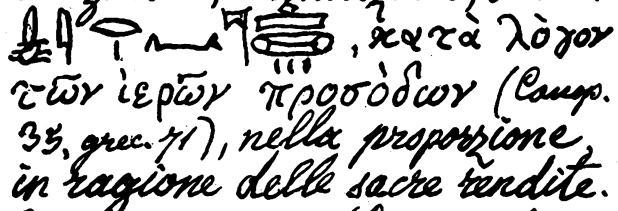 , κατὰ λὸγον
τῶν ἱερῶν προσὸδων (Canop.
35, grec. 71), nella proporzione,
in ragione delle sacre rendite.